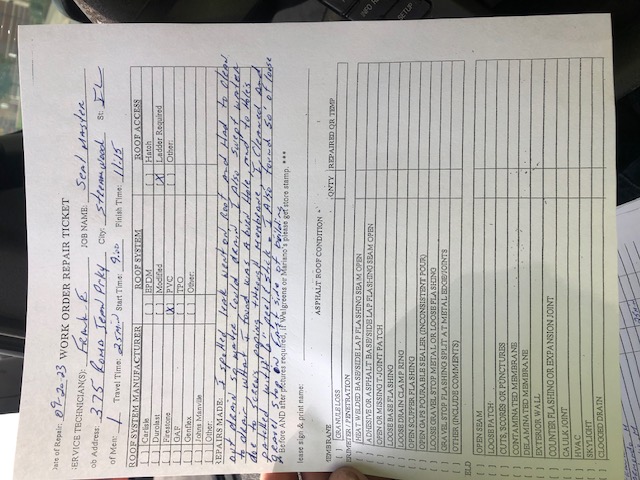 Date of Repair: 09-20-23 WORK ORDER REPAIR TICKET
SERVICE TECHNICIAN(S): Frank E JOB NAME: Seal Master
ob Address: 375 Roma Jean Prky City: Streamwood St: IL
of Men: 1 Travel Time: 25min Start Time: 9:00 Finish Time: 11:15
ROOF SYSTEM MANUFACTURER ROOF SYSTEM ROOF ACCESS
[ ] Carlisle [ ] EPDM [ ] Hatch
[ ] Durolast [ ] Modified [X] Ladder Required
[ ] Firestone [X] PVC [ ] Other:
[ ] GAF [ ] TPO
[ ] Genflex [ ] Other:
[ ] Johns Manville
[ ] Other:
REPAIRS MADE: I spotted leak went on Roof and Had to Clean
out drain so water could drain. I Also swept water
to drain, what I found was a burn Hole, and to Holes
due to screws poping through membrane, I cleaned and
patched with peel & stick. I Also found 50' of loose
gravel stop on East side of building
* Before AND after pictures required, if Walgreens or Mariano's please get store stamp. ***
lease sign & print name:
ASPHALT ROOF CONDITION
MEMBRANE QNTY REPAIRED OR TEMP
[ ] GRANULE LOSS
ERIMETER / PENETRATION
[ ] HEAT WELDED BASE/SIDE LAP FLASHING SEAM OPEN
[ ] ADHESIVE OR ASPHALT BASE/SIDE LAP FLASHING SEAM OPEN
[ ] OPEN OR MISSING T-JOINT PATCH
[ ] LOOSE BASE FLASHING
[ ] LOOSE DRAIN CLAMP RING
[ ] OPEN SCUPPER FLASHING
[ ] OPEN GAPS POURABLE SEALER (INCONSISTENT POUR)
[ ] LOOSE GRAVEL STOP METAL OR LOOSE FLASHING
[ ] GRAVEL STOP FLASHING SPLIT AT METAL EDGE/JOINTS
[ ] OTHER (INCLUDE COMMENTS)
ELD
[ ] OPEN SEAM
[ ] LOOSE PATCH
[ ] CUTS, SCORES OR PUNCTURES
[ ] CONTAMINATED MEMBRANE
[ ] DELAMINATED MEMBRANE
[ ] EXTERIOR WALL
[ ] COUNTER FLASHING OR EXPANSION JOINT
[ ] CAULK JOINT
[ ] HVAC
[ ] SKYLIGHT
[ ] CLOGGED DRAIN